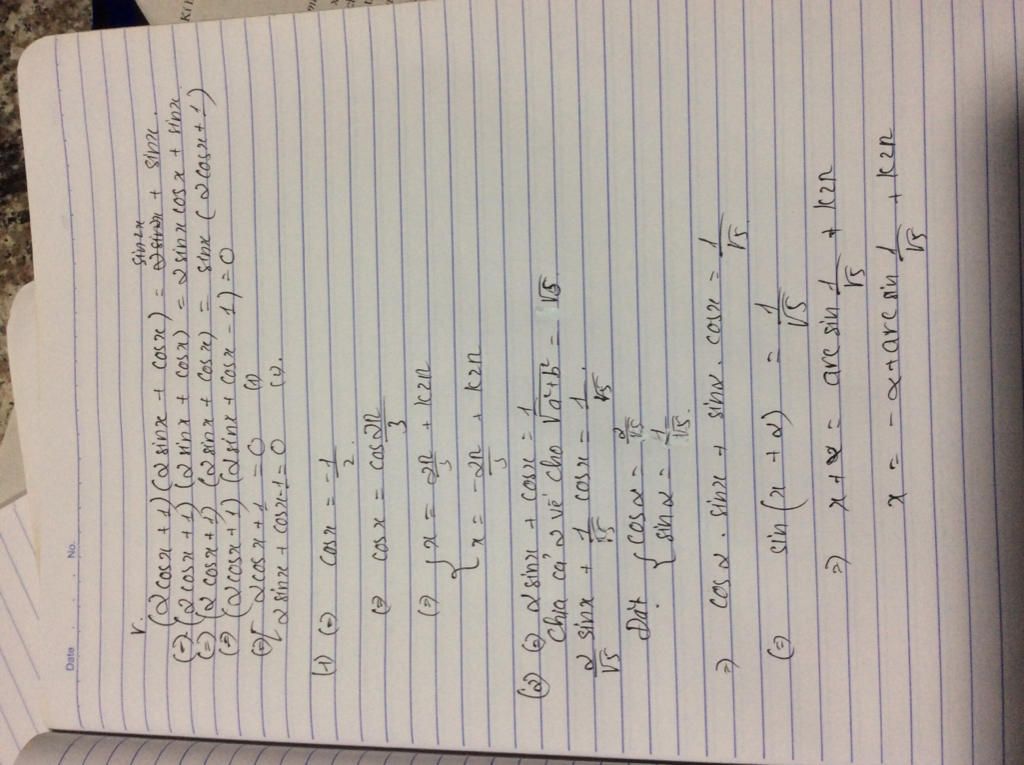 Date No.
V.
(2cosx + 1)(2sinx + cosx) = sin2x + sinx.
(=) (2cosx + 1)(2sinx + cosx) = 2sinx cosx + sinx
(=) (2cosx + 1)(2sinx + cosx) = sinx (2cosx + 1)
(=) (2cosx + 1)(2sinx + cosx - 1) = 0
(=) [ 2cosx + 1 = 0 (1)
2sinx + cosx - 1 = 0 (2).
(1) (=) cosx = -1/2.
(=) cosx = cos 2π/3
(=) { x = 2π/3 + k2π
x = -2π/3 + k2π
(2) (=) 2sinx + cosx = 1
Chia cả 2 vế cho √a²+b² = √5
2/√5 sinx + 1/√5 cosx = 1/√5.
Đặt { cosα = 2/√5
sinα = 1/√5.
=) cosα. sinx + sinα. cosx = 1/√5
(=) sin(x + α) = 1/√5
=) x + α = arcsin 1/√5 + k2π
x = -α + arcsin 1/√5 + k2π